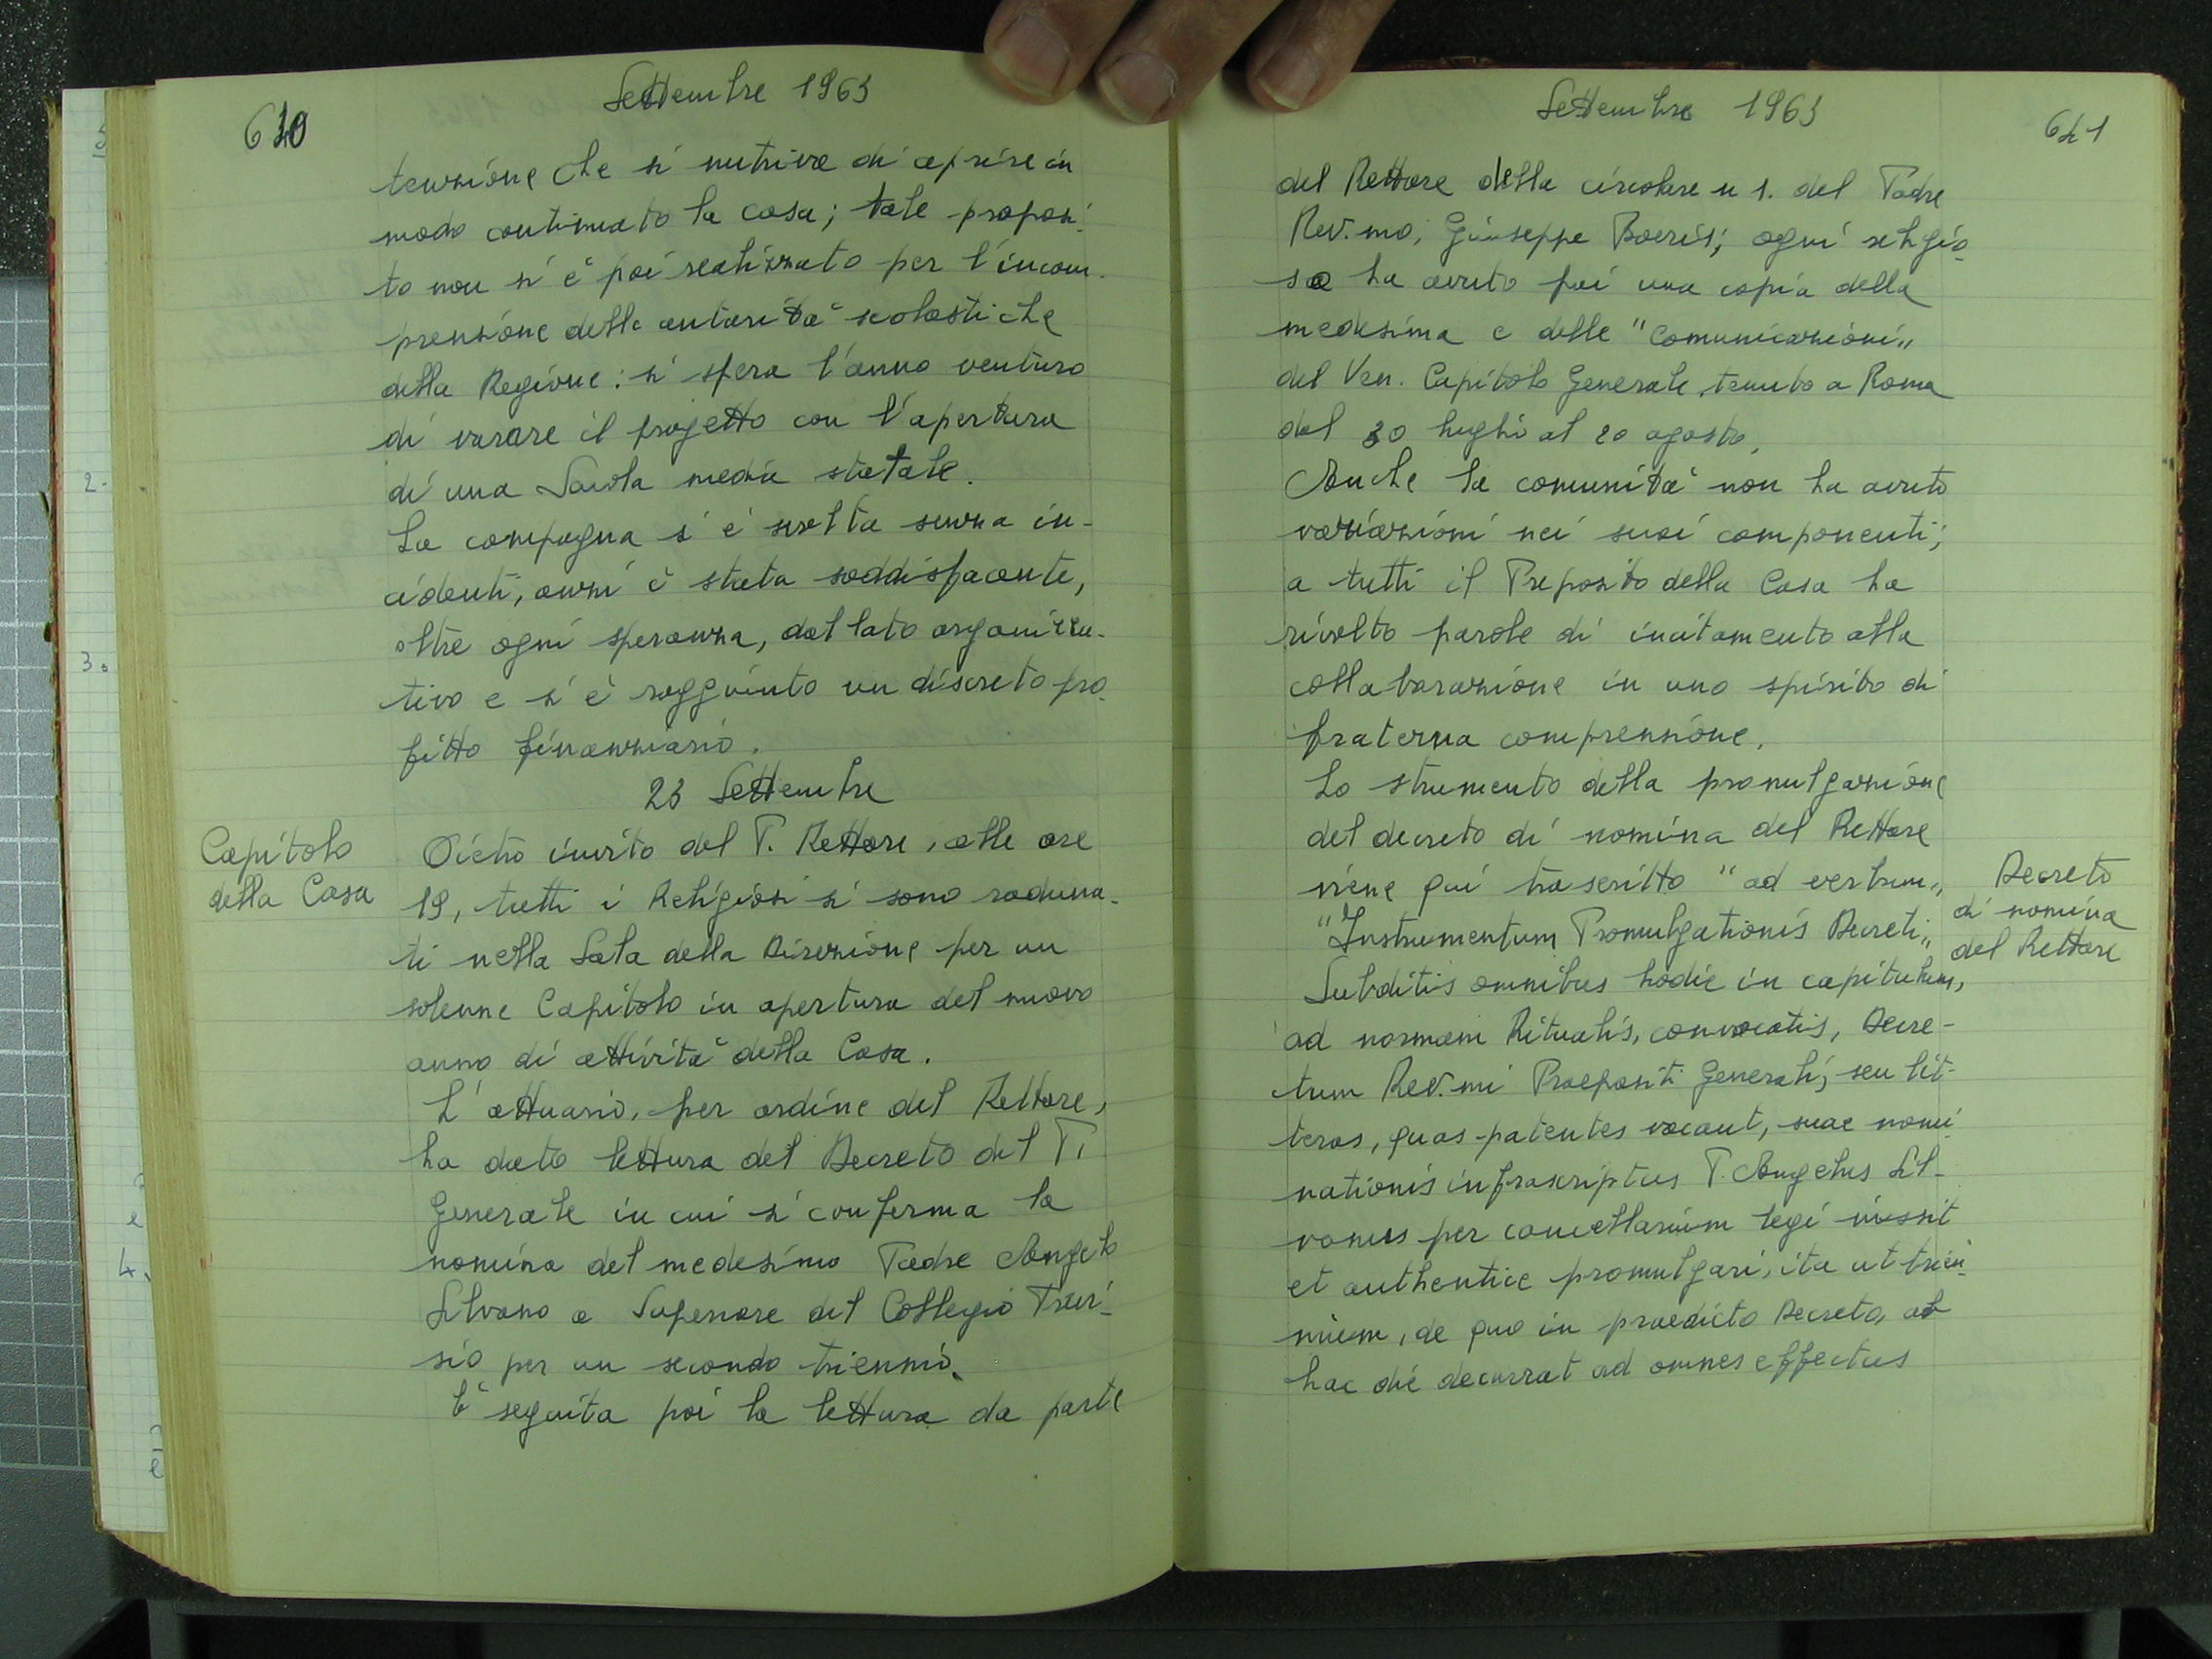 Settembre 1963
640
tenzione che si nutriva di aprire in
modo continuato la casa; tale proposi-
to non si è poi realizzato per l'incom-
prensione delle autorità scolastiche
della Regione: si spera l'anno venturo
di varare il progetto con l'apertura
di una Scuola media statale.
La campagna si è svolta senza in-
cidenti, anzi è stata soddisfacente,
oltre ogni speranza, dal lato organizza-
tivo e si è raggiunto un discreto pro-
fitto finanziario.
23 Settembre
Capitolo
della Casa
Dietro invito del P. Rettore, alle ore
19, tutti i Religiosi si sono raduna-
ti nella Sala della Direzione per un
solenne Capitolo in apertura del nuovo
anno di attività della Casa.
L'attuario, per ordine del Rettore,
ha dato lettura del Decreto del P.
Generale in cui si conferma la
nomina del medesimo Padre Angelo
Silvano a Superiore del Collegio Trevi-
sio per un secondo triennio.
E' seguita poi la lettura da parte
Settembre 1963
641
del Rettore della circolare n 1. del Padre
Rev.mo, Giuseppe Boeris; ogni religio-
so ha avuto poi una copia della
medesima e delle "Comunicazioni"
del Ven. Capitolo Generale, tenuto a Roma
dal 30 luglio al 20 agosto.
Anche la comunità non ha avuto
variazioni nei suoi componenti;
a tutti il Preposito della Casa ha
rivolto parole di incitamento alla
collaborazione in uno spirito di
fraterna comprensione.
Lo strumento della promulgazione
del decreto di nomina del Rettore
viene qui trascritto "ad verbum"
Decreto
di nomina
del Rettore
"Instrumentum Promulgationis Decreti"
Subditis omnibus hodie in capitulum,
ad normam Ritualis, convocatis, Decre-
tum Rev.mi Praepositi Generalis, seu lit-
teras, quas patentes vocant, suae nomi-
nationis infrascriptus P. Angelus Sil-
vanus per cancellarium legi iussit
et authentice promulgari, ita ut trien-
nium, de quo in praedicto Decreto, ab
hac die decurrat ad omnes effectus